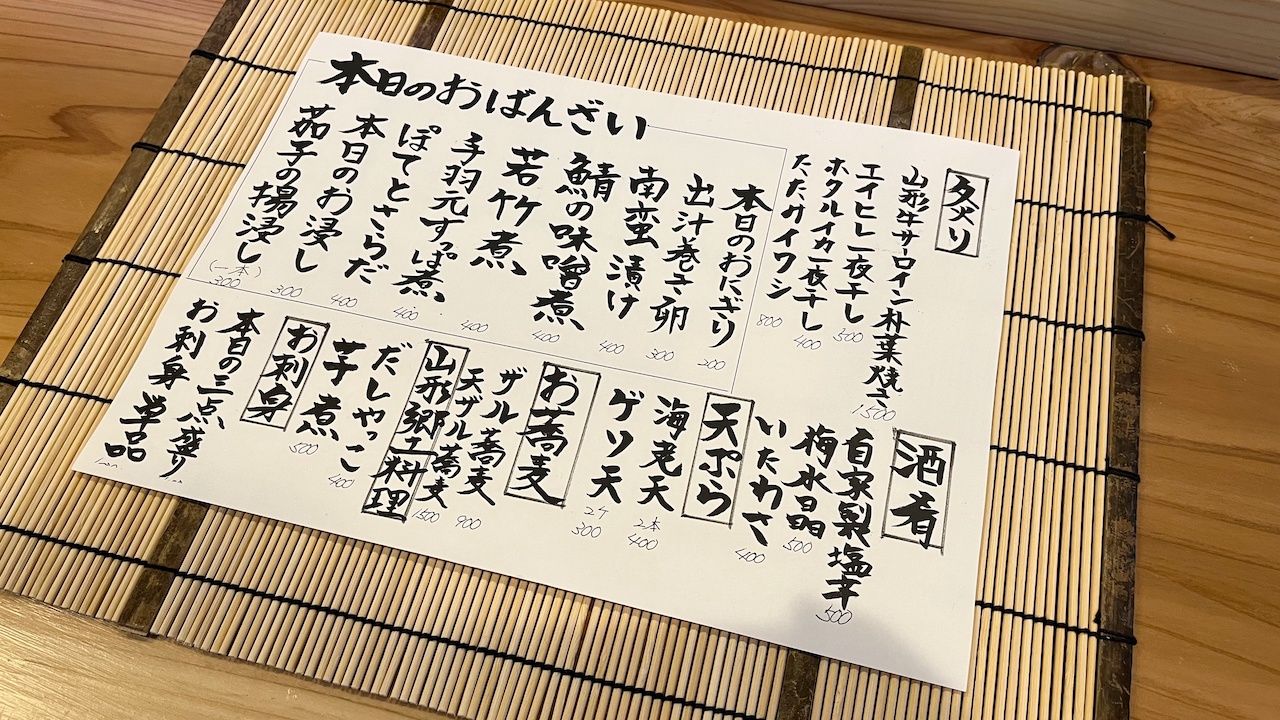 本日のおばんざい
本日のおにぎり
200
出汁巻き卵
300
南蛮漬け
400
鯖の味噌煮
400
若竹煮
400
手羽元すっぱ煮
400
ぽてとさらだ
400
本日のお浸し
300
茄子の揚浸し
(一本)
300
炙り
山形牛サーロイン朴葉焼き
1500
エイヒレ一夜干し
500
ホタルイカ一夜干し
400
たたみイワシ
800
酒肴
自家製塩辛
500
梅水晶
500
いたわさ
400
天ぷら
海老天
2本
400
ゲソ天
2ケ
300
お蕎麦
ザル蕎麦
900
天ザル蕎麦
1500
山形郷土料理
だしやっこ
400
芋煮
500
お刺身
本日の三点盛り
お刺身 単品